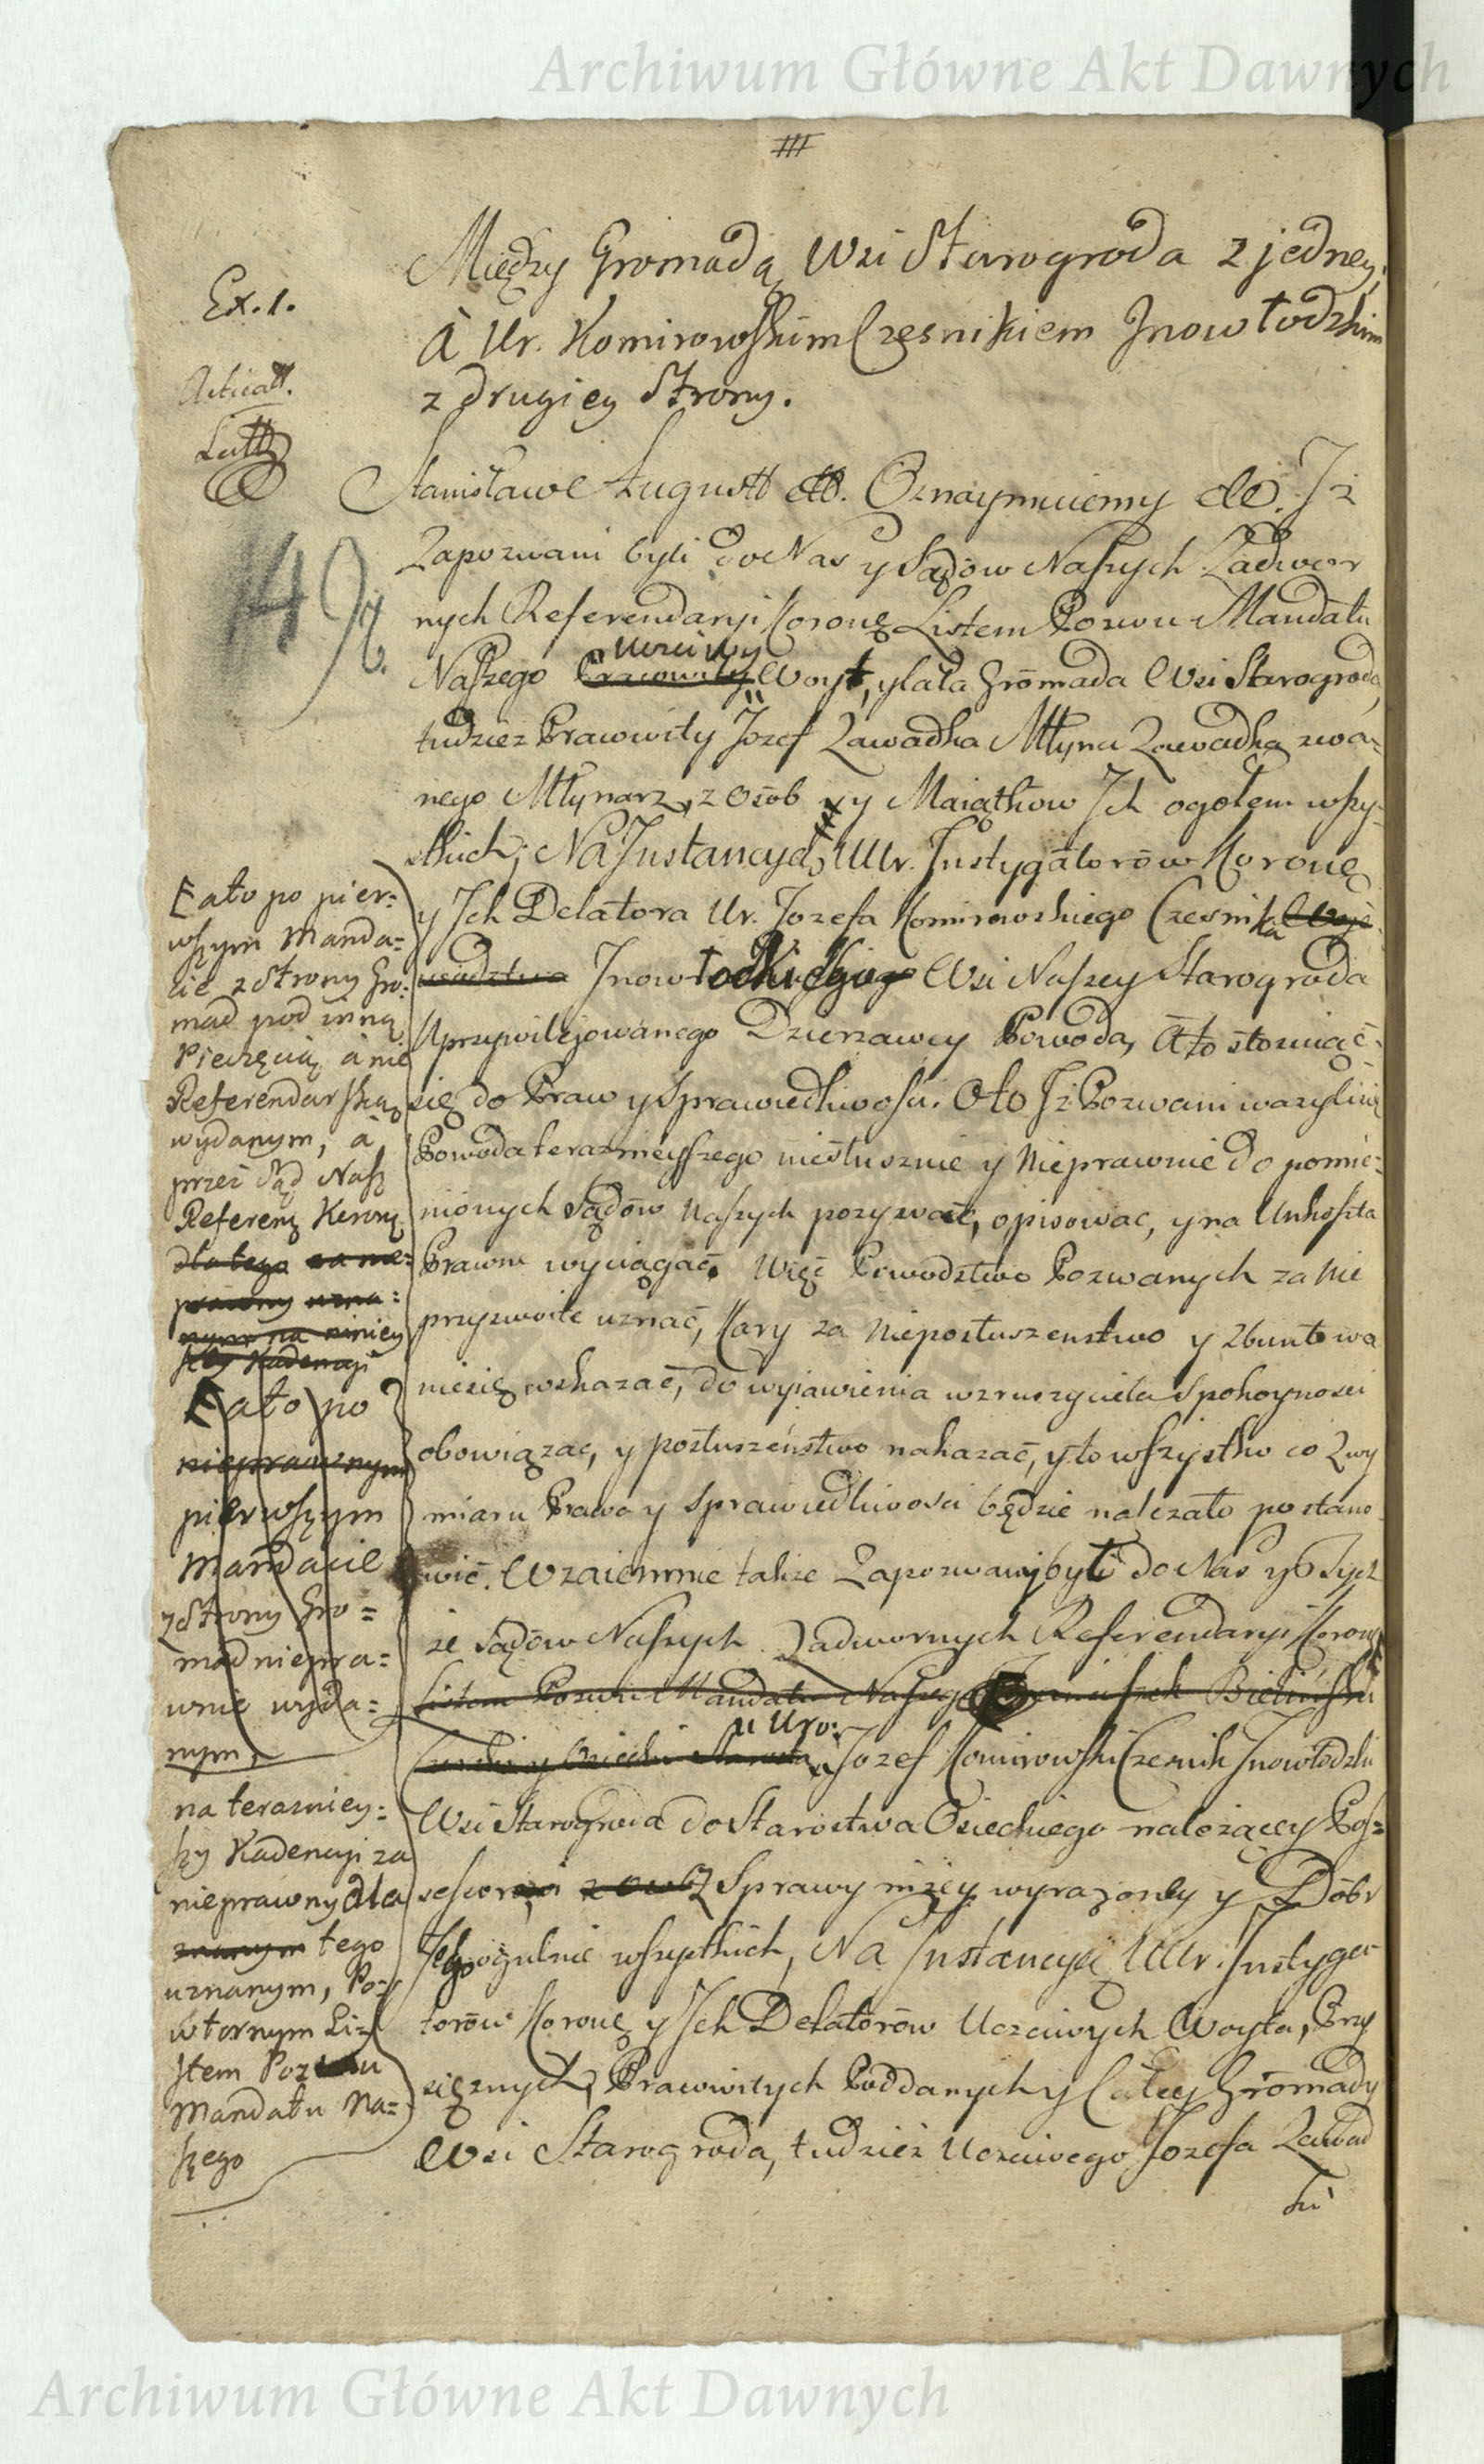 Archiwum Główne Akt Dawnych
Między Gromadą Wsi Starogroda z jedney,
Ex. 1.
à Ur. Komirowskim Czesnikiem Jnowłodzkim
z drugiey Strony.
Stanisław August ett. Oznaymuiemy ett. Jż
Zapozwani byli do Nas y Sądow Naszych Zadwor
nych Referendaryi Koronę Listem Pozwu Mandatu
Uczciwy
Naszego Pracowity Woyt, y cała Gromada Wsi Starogroda,
tudziez Pracowity Jozef Zawadka Młyna Zawadką zwa=
nego Młynarz, z Osob y Maiątkow Jch ogołem wszy=
stkich; Na Jnstancyą UUr. Jnstygatorów Koronę
y Jch Delatora Ur. Jozefa Komirowskiego Czesnika Woje
wodztwa Jnowłodzkiego Wsi Naszey Starogroda
Uprzywilejowanego Dzierzawcy Powoda, à to stosuiąc
się do Praw y Sprawiedliwości. Oto Jż Pozwani wazyli się
Powoda teraznieyszego niesłusznie y Nieprawnie do pomie=
nionych Sądów Naszych pozywać, opisować, y na Unkoszta
Prawne wyciągać, Więć Powodztwo Pozwanych za Nie
przyzwoite uznać, Kary za Nieposłuszenstwo y Zbuntowa
niesię wskazać, do wyiawienia wzruszyciela Spokoynosci
obowiązac, y posłuszenstwo nakazać, y to wszystko co Zwy
miaru Prawa y Sprawiedliwosci będzie nalezało postano
wić. Wzaiemnie takze Zapozwany był do Nas y Tych
ze Sądów Naszych Zadwornych Referendaryi Koronę
Listem Pozwu Mandatu Naszego Franciszek Bielinski
u Uro:
Jozef Komirowski Czesnik Jnowłodzki
Wsi Starogroda do Starostwa Osieckiego nalezącey Pos=
sessor z Sprawy niżey wyrazoney y Dóbr
Jego ogulnie wszystkich, Na Jnstancyą UUr. Jnstyga=
torów Koronę y Jch Delatórów Uczciwych Woyta, Przy
sięznych, Pracowitych Poddanych y Całey Gromady
Wsi Starogroda, tudzież Uczciwego Jozefa Zawad
ki
E ato po pier=
wszym Manda=
cie z strony Gro=
mad pod inną
Pieczęcią à nie
Referendarską
wydanym, à
przez Sąd Nasz
Referenę Koronę
dla tego za nie=
prawny uzna=
nym na niniey
szey Kadencyi
E ato po
nieprawnym
pierwszym
Mandacie
z strony Gro=
mad niepra=
wnie wyda=
nym,
na teraźniey=
szy Kadencyi za
nieprawny dla
znanym tego
uznanym, Po=
wtornym Li=
stem Pozwu
Mandatu Na=
szego
Archiwum Główne Akt Dawnych